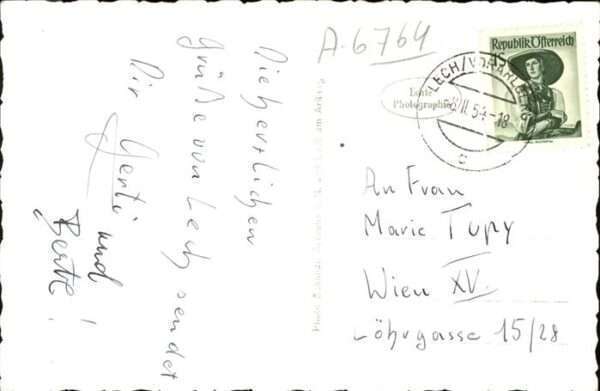 Die herzlichen
Grüße von Lech sendet
Dir Gerti und
Berta!
A-6764
Republik Österreich
LECH/VORARLBERG
II. 54-18
c
Echte
Photographie
am Arlberg
An Frau
Marie Tupy
Wien XV.
Löhrgasse 15/28